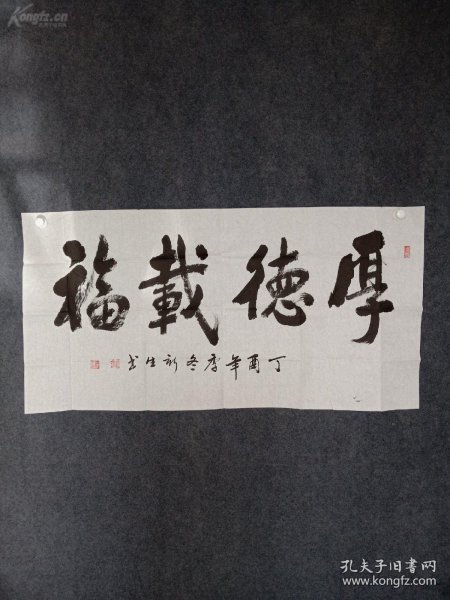 Kongfz.cn
厚德載福
丁酉年季冬新生书
孔夫子旧书网
www.kongfz.com